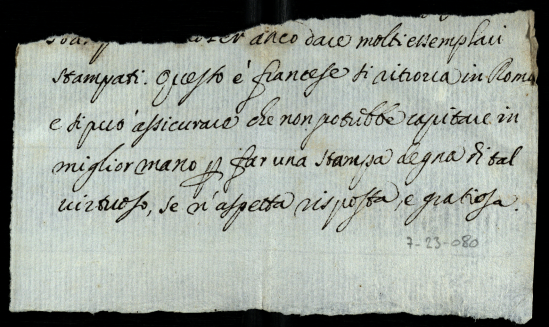 anco dare molti essemplari
stampati. Questo è francese si ritrova in Roma
e si può assicurare che non potrebbe capitare in
miglior mano p far una stampa degna di tal
virtuoso, se n'aspetta risposta, e gratiosa.
7-23-080